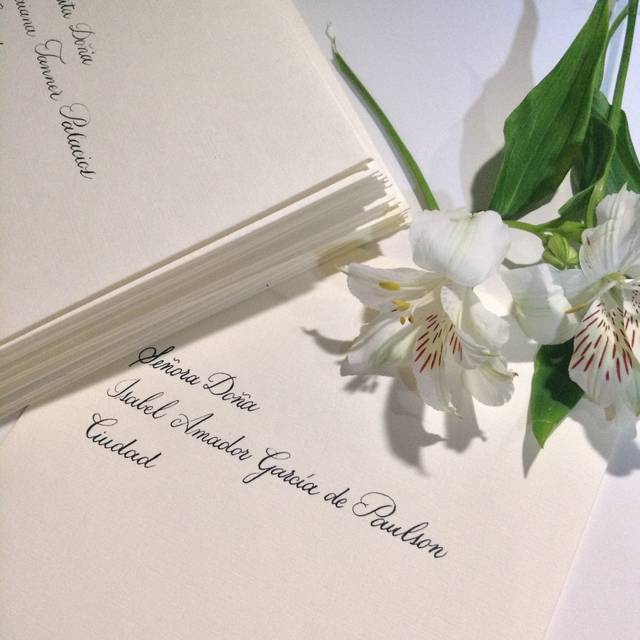 Doña
Tanner Palacios
Señora Doña
Isabel Amador García de Paulson
Ciudad